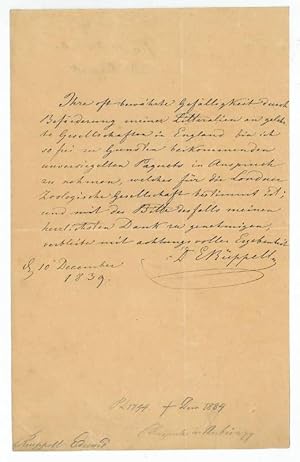 Ihre oft bewährte Gefälligkeit durch
Beförderung meiner Litteralien an gelehr
te Gesellschaften in England bin ich
so frei zu Gunsten beikommenden
unversiegelten Paquets in Anspruch
zu nehmen, welches für die Londner
Zoologische Gesellschaft bestimmt ist;
und mit der Bitte desfalls meinen
herzlichsten Dank zu genehmigen,
verbleibe mit achtungsvoller Ergebenheit
Dr ERüppell
10 December
1839.
1794 † Dec 1884
Rüppell Eduard